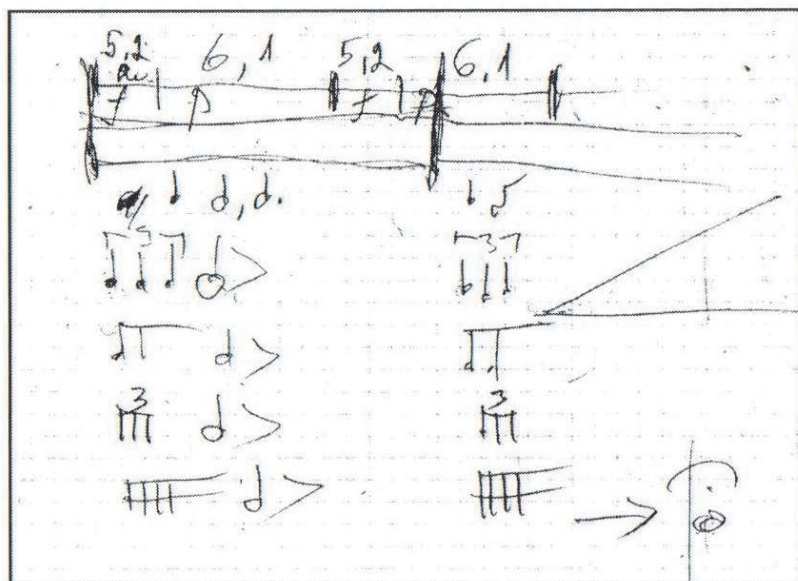 5,2 6,1 5,2 6,1
f p f p
3 3
3 3